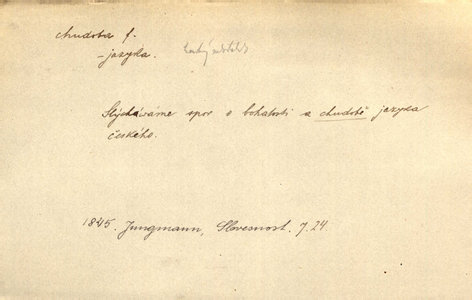 chudoba f.
– jazyka.
Slýcháváme spor o bohatosti a chudobě jazyka
českého.
1845. Jungmann, Slovesnost. J. 24.